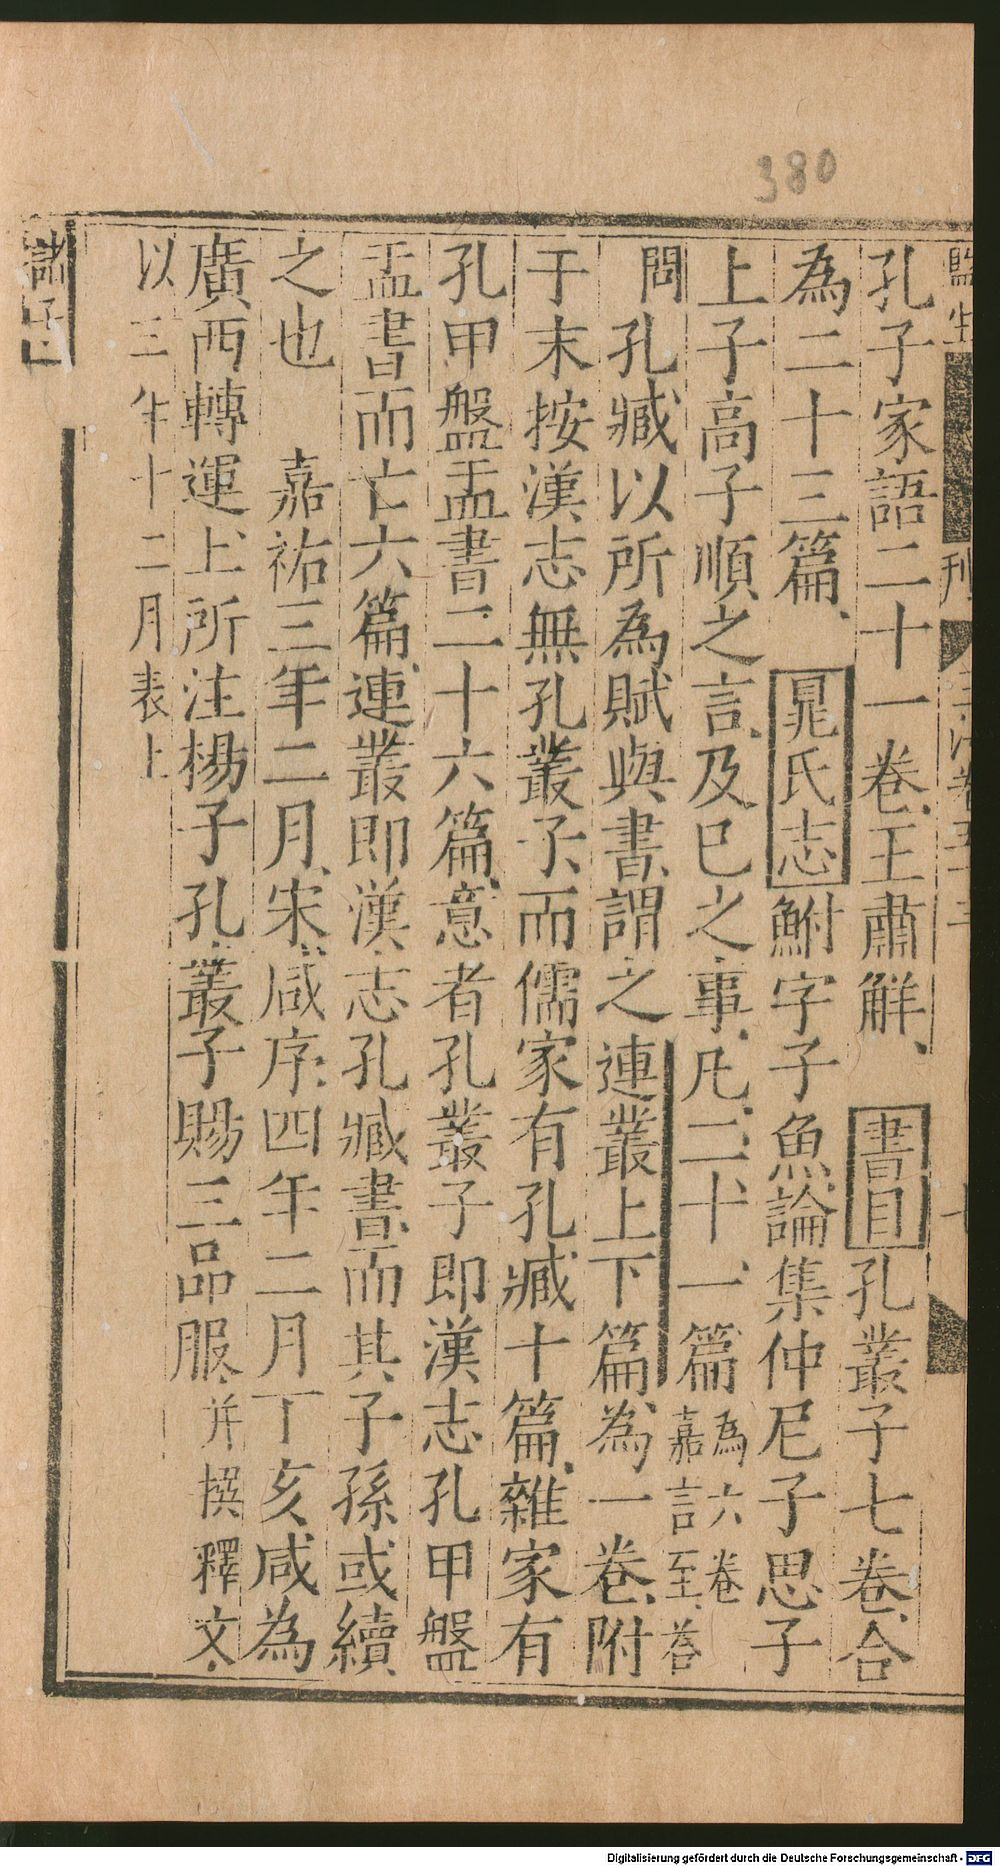 380
監生
刊
孔子家語二十一卷王肅解書目孔叢子七卷合
為二十三篇晁氏志鮒字子魚論集仲尼子思子
上子高子順之言及巳之事凡二十一篇為六卷嘉言至荅
問孔臧以所為賦與書謂之連叢上下篇為一卷附
于末按漢志無孔叢子而儒家有孔臧十篇雜家有
孔甲盤盂書二十六篇意者孔叢子即漢志孔甲盤
盂書而亡六篇連叢即漢志孔臧書而其子孫或續
之也 嘉祐三年二月宋咸序四年二月丁亥咸為
廣西轉運上所注楊子孔叢子賜三品服并撰釋文
以三年十二月表上
諸子
Digitalisierung gefördert durch die Deutsche Forschungsgemeinschaft - DFG